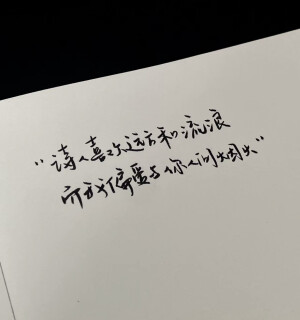 "诗人喜欢远方和流浪
而我偏爱与你人间烟火"